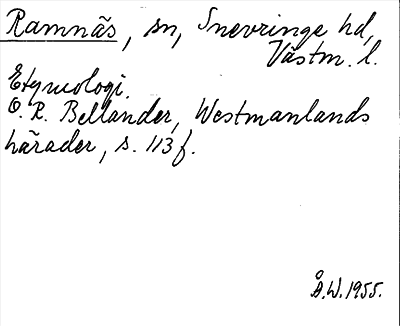 Ramnäs, sn, Snevringe hd,
Västm. l.
Etymologi.
O. R. Bellander, Westmanlands
härader, s. 113 f.
Å.W. 1955.